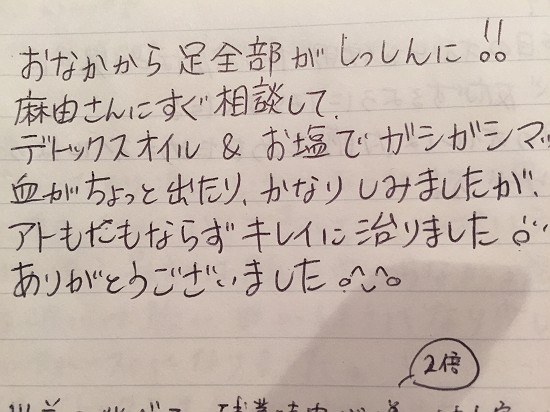 おなかから足全部がしっしんに!!
麻由さんにすぐ相談して、
デトックスオイル & お塩でガシガシマッ
血がちょっと出たり、かなりしみましたが、
アトもだもならず キレイに治りました
ありがとうございました
2倍